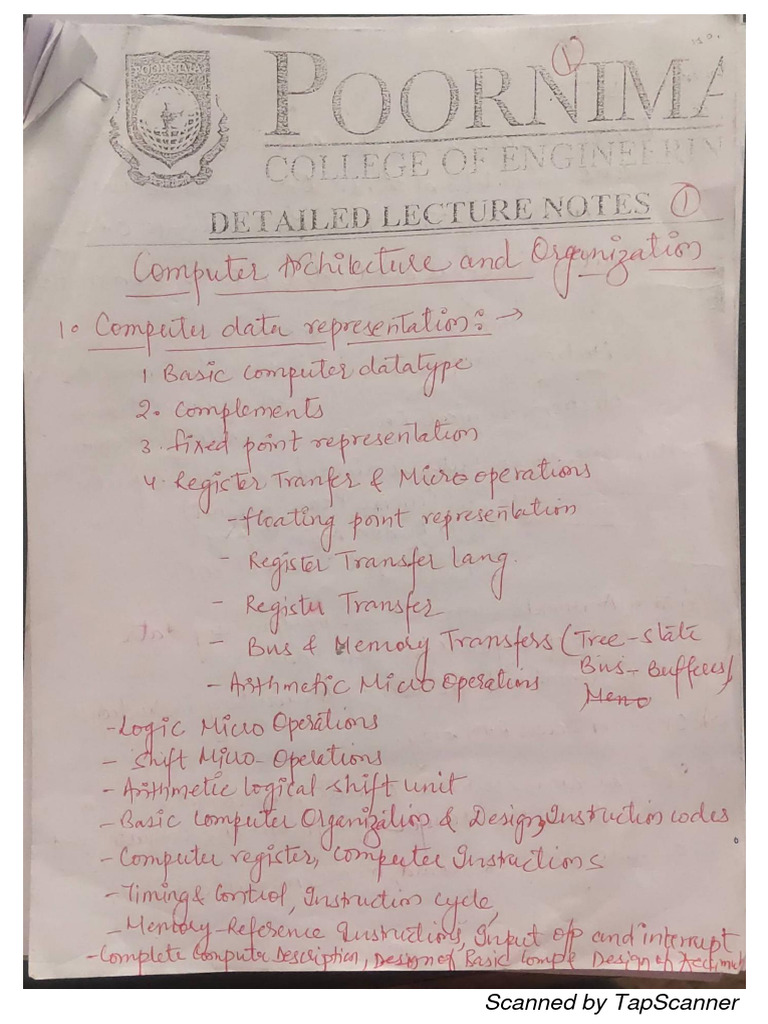 POORNIMA
1
POORNIMA
COLLEGE OF ENGINEERIN
DETAILED LECTURE NOTES 1
Computer Architecture and Organization
1. Computer data representation: →
1. Basic computer datatype
2. Complements
3. fixed point representation
4. Register Tranfer & Micro operations
- floating point representation
- Register Transfer lang.
- Register Transfer
- Bus & Memory Transfers (Tree-state
Bus-Buffers,
- Arithmetic Micro Operations
Memo
- Logic Micro Operations
- Shift Micro-Operations
- Arithmetic logical shift unit
- Basic Computer Organization & Design, Instruction codes
- Computer register, Computer Instructions
- Timing & Control, Instruction cycle,
- Memory-Reference Instructions, Input o/p and interrupt
- Complete Computer Description, Design of Basic Comp Design of
Scanned by TapScanner